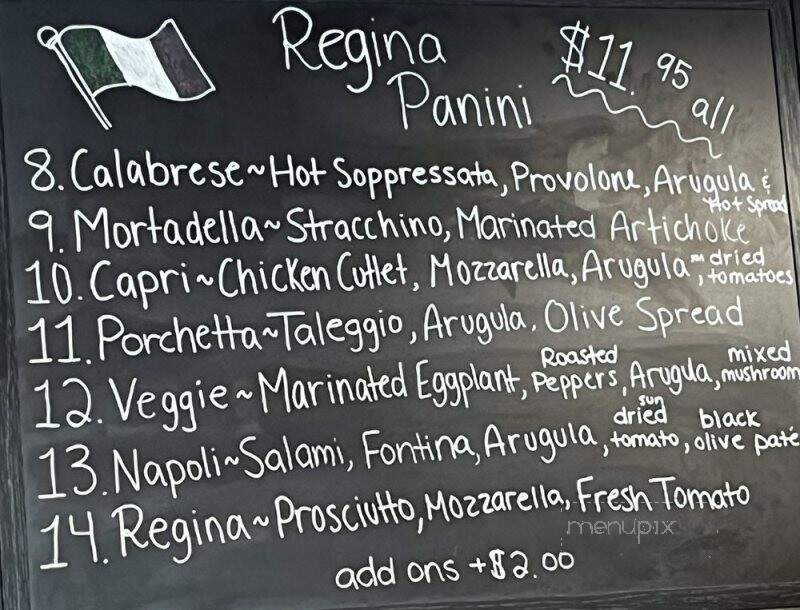 Regina
Panini
$11.95 all
8. Calabrese ~ Hot Soppressata, Provolone, Arugula & Hot Spread
9. Mortadella ~ Stracchino, Marinated Artichoke
10. Capri ~ Chicken Cutlet, Mozzarella, Arugula, dried tomatoes
11. Porchetta ~ Taleggio, Arugula, Olive Spread
12. Veggie ~ Marinated Eggplant, Roasted Peppers, Arugula, mixed mushroom
13. Napoli ~ Salami, Fontina, Arugula, sun dried tomato, black olive paté
14. Regina ~ Prosciutto, Mozzarella, Fresh Tomato
menupix
add ons + $2.00